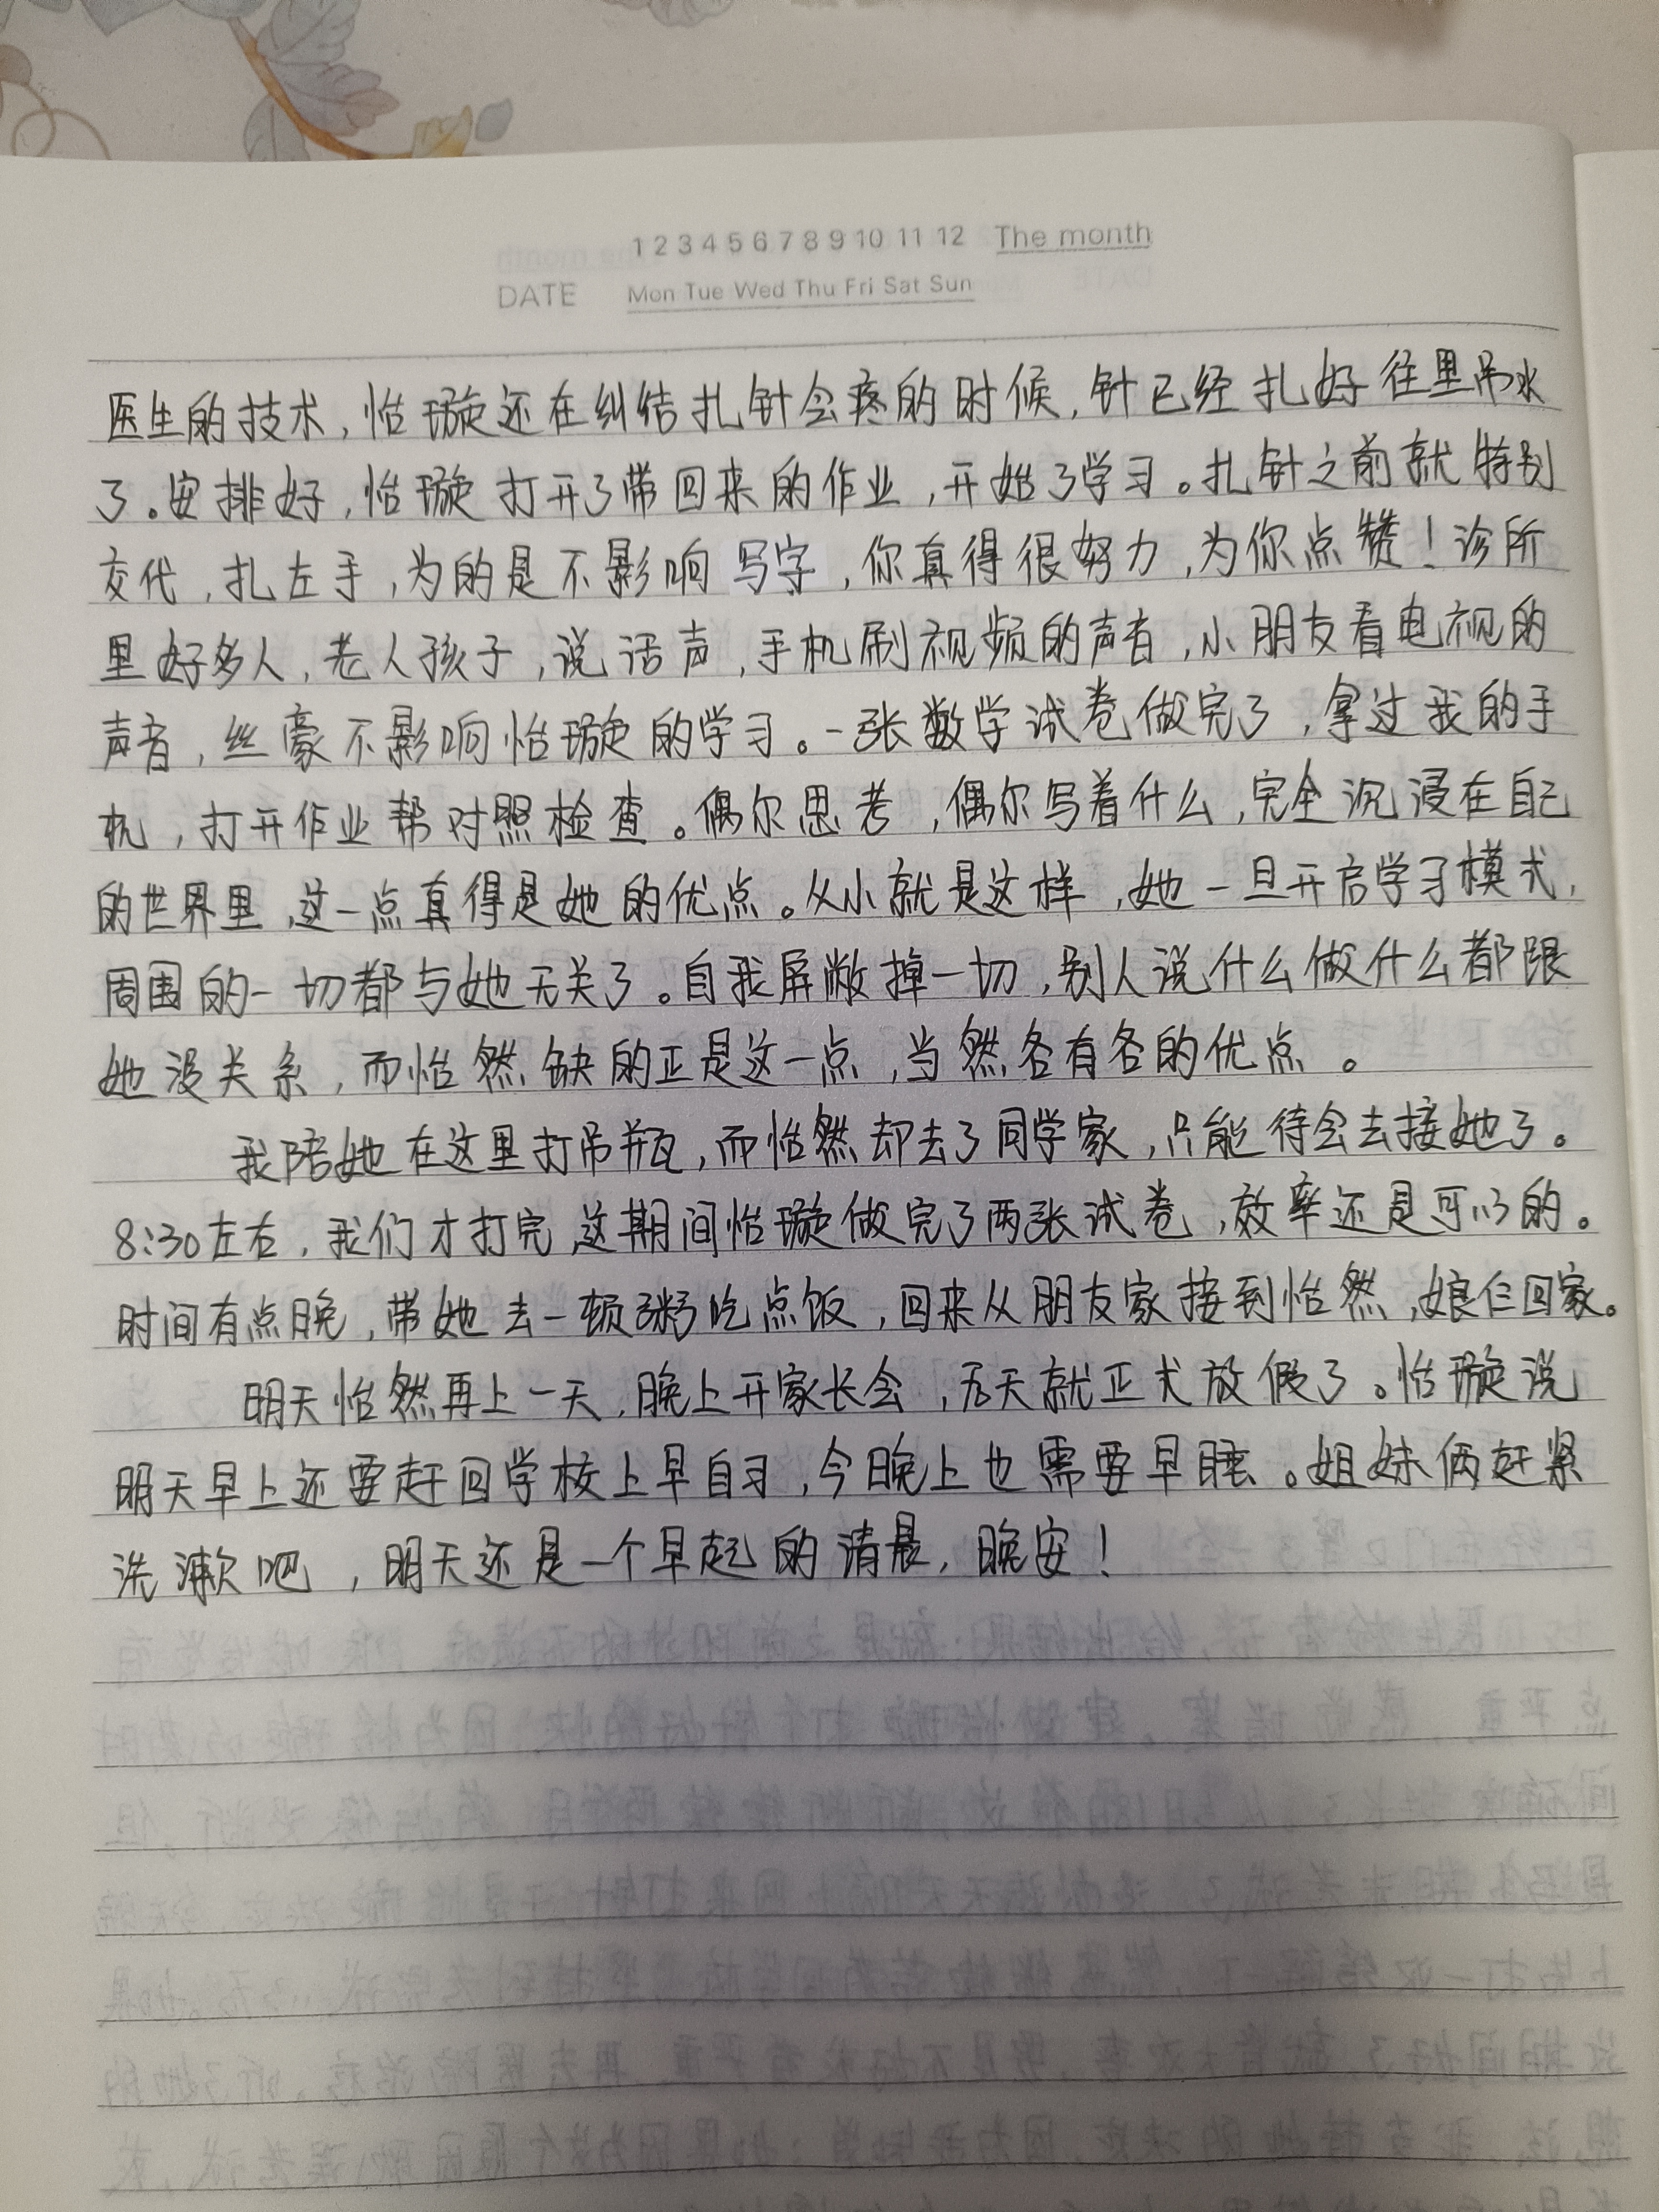 1 2 3 4 5 6 7 8 9 10 11 12 The month
DATE Mon Tue Wed Thu Fri Sat Sun
医生的技术,怡璇还在纠结扎针会疼的时候,针已经扎好往里吊水
了。安排好,怡璇打开了带回来的作业,开始了学习。扎针之前就特别
交代,扎左手,为的是不影响写字,你真得很努力,为你点赞!诊所
里好多人,老人孩子,说话声,手机刷视频的声音,小朋友看电视的
声音,丝毫不影响怡璇的学习。一张数学试卷做完了,拿过我的手
机,打开作业帮对照检查。偶尔思考,偶尔写着什么,完全沉浸在自己
的世界里,这一点真得是她的优点。从小就是这样,她一旦开启学习模式,
周围的一切都与她无关了。自我屏敝掉一切,别人说什么做什么都跟
她没关系,而怡然缺的正是这一点,当然各有各的优点。
我陪她在这里打吊瓶,而怡然却去了同学家,只能待会去接她了。
8:30左右,我们才打完,这期间怡璇做完了两张试卷,效率还是可以的。
时间有点晚,带她去一顿粥吃点饭,回来从朋友家接到怡然,娘仨回家。
明天怡然再上一天,晚上开家长会,后天就正式放假了。怡璇说
明天早上还要赶回学校上早自习,今晚上也需要早睡。姐妹俩赶紧
洗漱吧,明天还是一个早起的清晨,晚安!